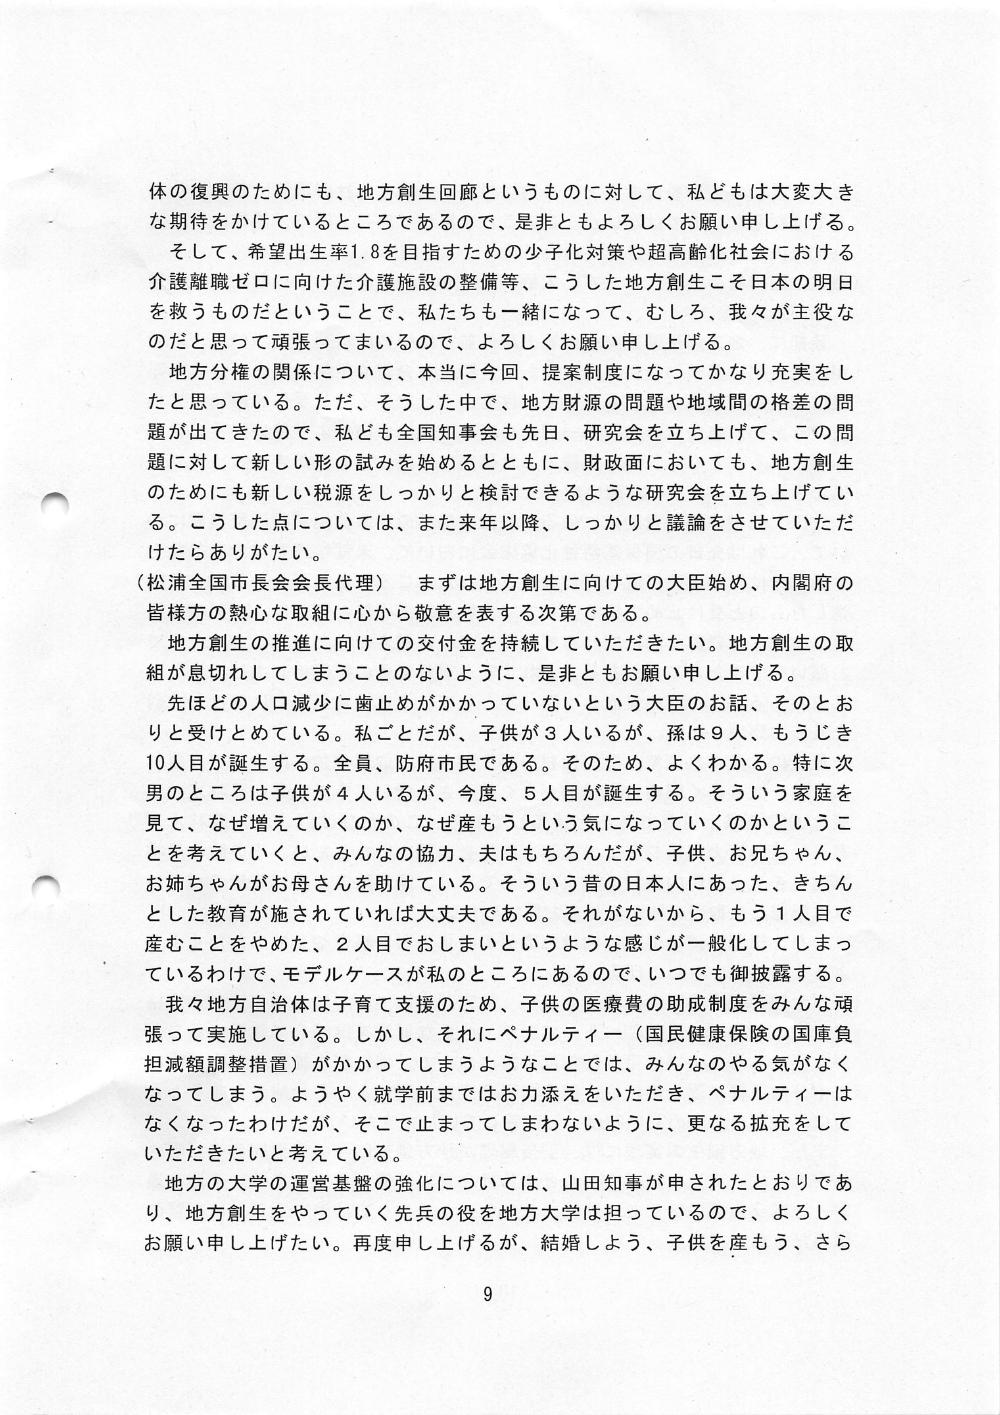 体の復興のためにも、地方創生回廊というものに対して、私どもは大変大き
な期待をかけているところであるので、是非ともよろしくお願い申し上げる。
　そして、希望出生率1.8を目指すための少子化対策や超高齢化社会における
介護離職ゼロに向けた介護施設の整備等、こうした地方創生こそ日本の明日
を救うものだということで、私たちも一緒になって、むしろ、我々が主役な
のだと思って頑張ってまいるので、よろしくお願い申し上げる。
　地方分権の関係について、本当に今回、提案制度になってかなり充実をし
たと思っている。ただ、そうした中で、地方財源の問題や地域間の格差の問
題が出てきたので、私ども全国知事会も先日、研究会を立ち上げて、この問
題に対して新しい形の試みを始めるとともに、財政面においても、地方創生
のためにも新しい税源をしっかりと検討できるような研究会を立ち上げてい
る。こうした点については、また来年以降、しっかりと議論をさせていただ
けたらありがたい。
（松浦全国市長会会長代理）　まずは地方創生に向けての大臣始め、内閣府の
皆様方の熱心な取組に心から敬意を表する次第である。
　地方創生の推進に向けての交付金を持続していただきたい。地方創生の取
組が息切れしてしまうことのないように、是非ともお願い申し上げる。
　先ほどの人口減少に歯止めがかかっていないという大臣のお話、そのとお
りと受けとめている。私ごとだが、子供が３人いるが、孫は９人、もうじき
10人目が誕生する。全員、防府市民である。そのため、よくわかる。特に次
男のところは子供が４人いるが、今度、５人目が誕生する。そういう家庭を
見て、なぜ増えていくのか、なぜ産もうという気になっていくのかというこ
とを考えていくと、みんなの協力、夫はもちろんだが、子供、お兄ちゃん、
お姉ちゃんがお母さんを助けている。そういう昔の日本人にあった、きちん
とした教育が施されていれば大丈夫である。それがないから、もう１人目で
産むことをやめた、２人目でおしまいというような感じが一般化してしまっ
ているわけで、モデルケースが私のところにあるので、いつでも御披露する。
　我々地方自治体は子育て支援のため、子供の医療費の助成制度をみんな頑
張って実施している。しかし、それにペナルティー（国民健康保険の国庫負
担減額調整措置）がかかってしまうようなことでは、みんなのやる気がなく
なってしまう。ようやく就学前まではお力添えをいただき、ペナルティーは
なくなったわけだが、そこで止まってしまわないように、更なる拡充をして
いただきたいと考えている。
　地方の大学の運営基盤の強化については、山田知事が申されたとおりであ
り、地方創生をやっていく先兵の役を地方大学は担っているので、よろしく
お願い申し上げたい。再度申し上げるが、結婚しよう、子供を産もう、さら
9